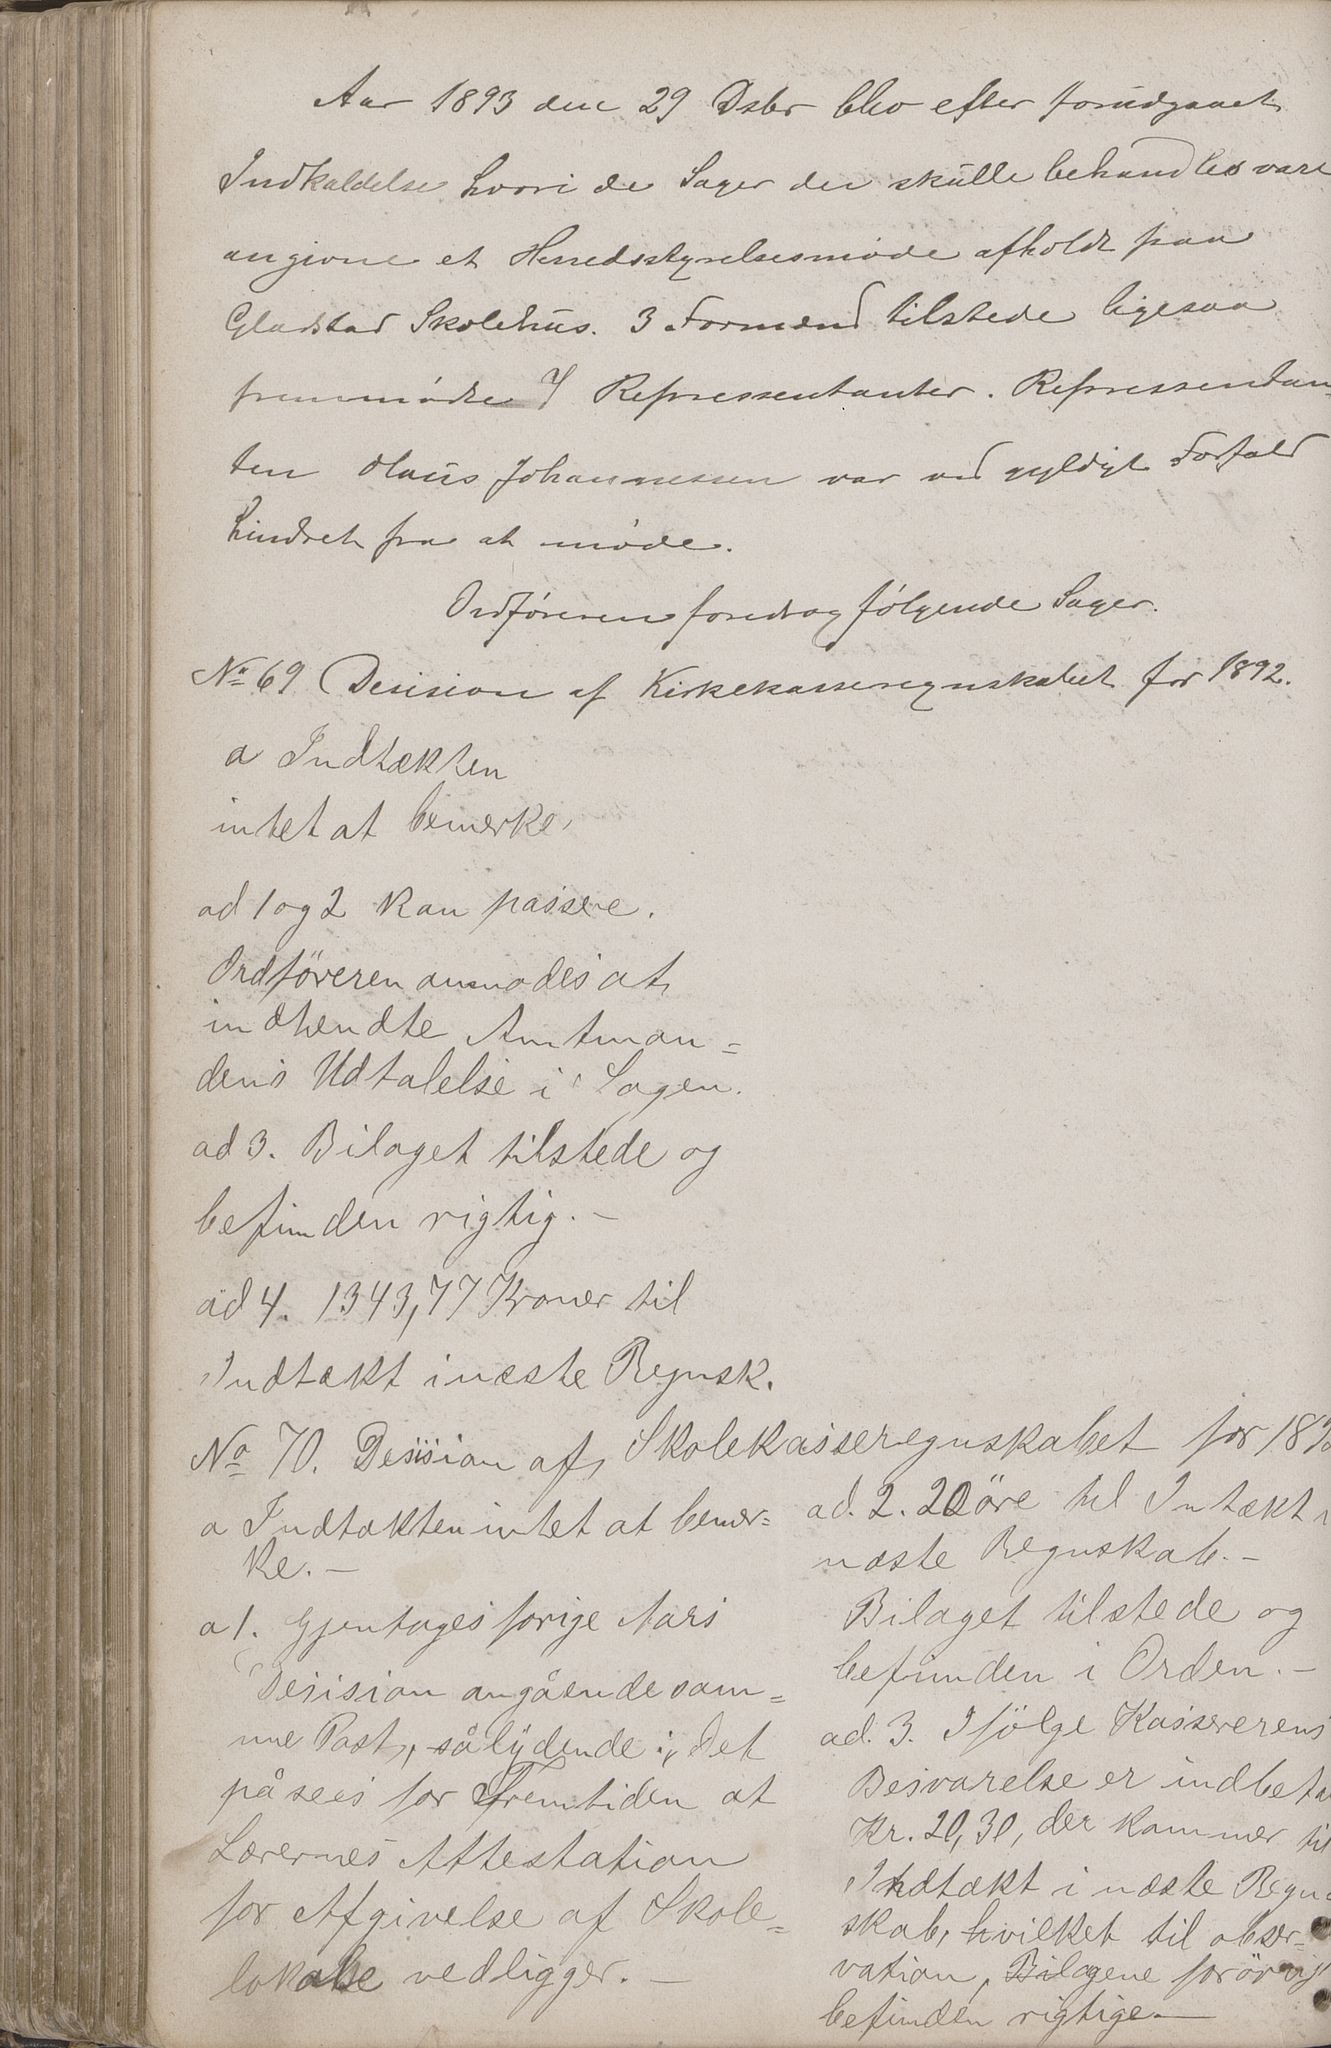 Aar 1893 den 29 Dsbr blev efter forudgaaet
Indkaldelse hvori de Sager der skulle behandles vare
angivne et Herredsstyrelsesmøde afholdt paa
Gladstad Skolehus. 3 Formænd tilstede ligesaa
fremmødte 7 Repressentanter. Repressentan-
ten Olaus Johannessen var ved gyldigt Forfald
hindret fra at møde.
Ordføreren foredrog følgende Sager.
No 69 Desision af Kirkekasseregnskabet for 1892.
a Indtækten
intet at bemerke.
ad 1 og 2 kan passere.
Ordföreren anmodes at
indhendte Amtman=
dens Udtalelse i Sagen.
ad 3. Bilaget tilstede og
befunden rigtig. –
ad 4. 1343,77 Kroner til
Indtækt i næste Regnsk.
No 70. Desision af Skolekasseregnskabet for 189
a Indtækten intet at bemær=
ke. –
a 1. Gjentages forige Aars
Desision angående sam=
me Post, sålydende: „Det
påsees for Fremtiden at
Lærernes Attestation
for Afgivelse af Skole=
lokale vedligger. –
ad. 2. 20 öre til Intækt i
næste Regnskab. –
Bilaget tilstede og
befunden i Orden. –
ad. 3. Ifölge Kassererens
Besvarelse er indbeta
Kr. 20,30, der kommer til
Indtækt i næste Regn=
skab, hvilket til obser=
vation, Bilagene forörvigt
befunden rigtige. –